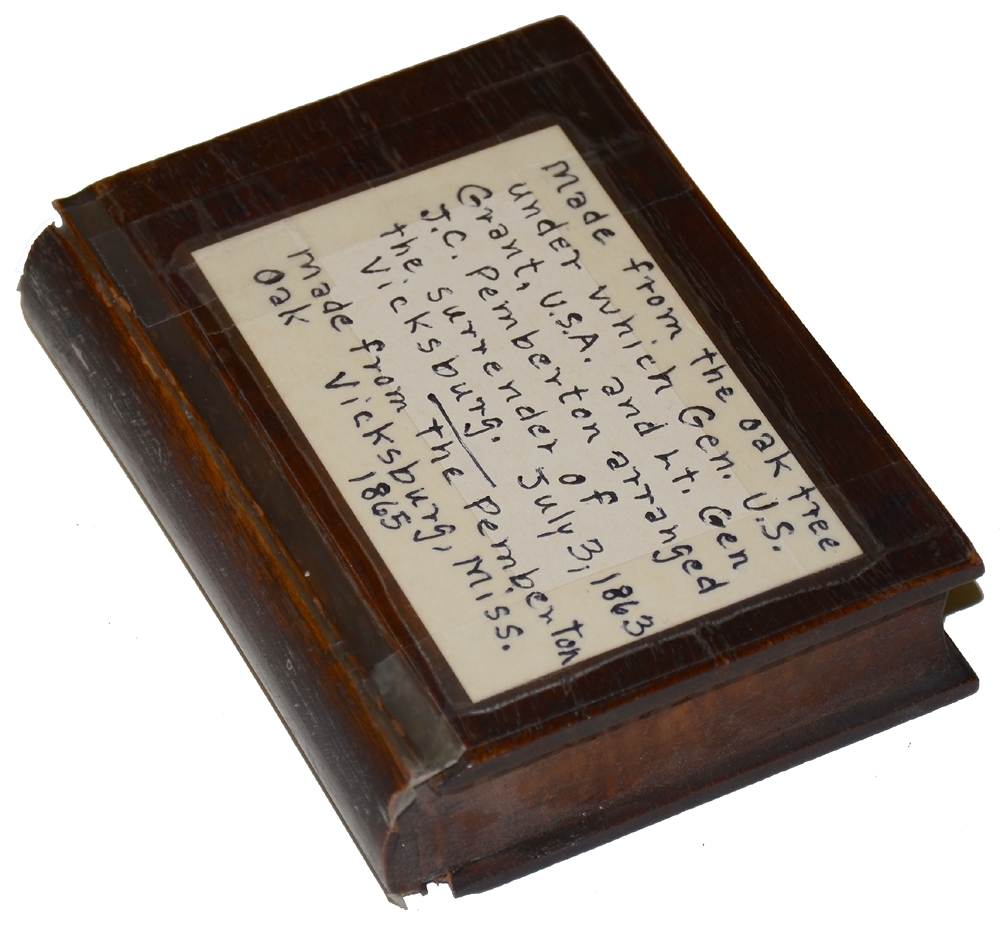 made from the oak tree
under which Gen. U.S.
Grant, U.S.A. and Lt. Gen
J.C. Pemberton arranged
the surrender of
Vicksburg. July 3, 1863
made from the Pemberton
Oak Vicksburg, Miss.
1865